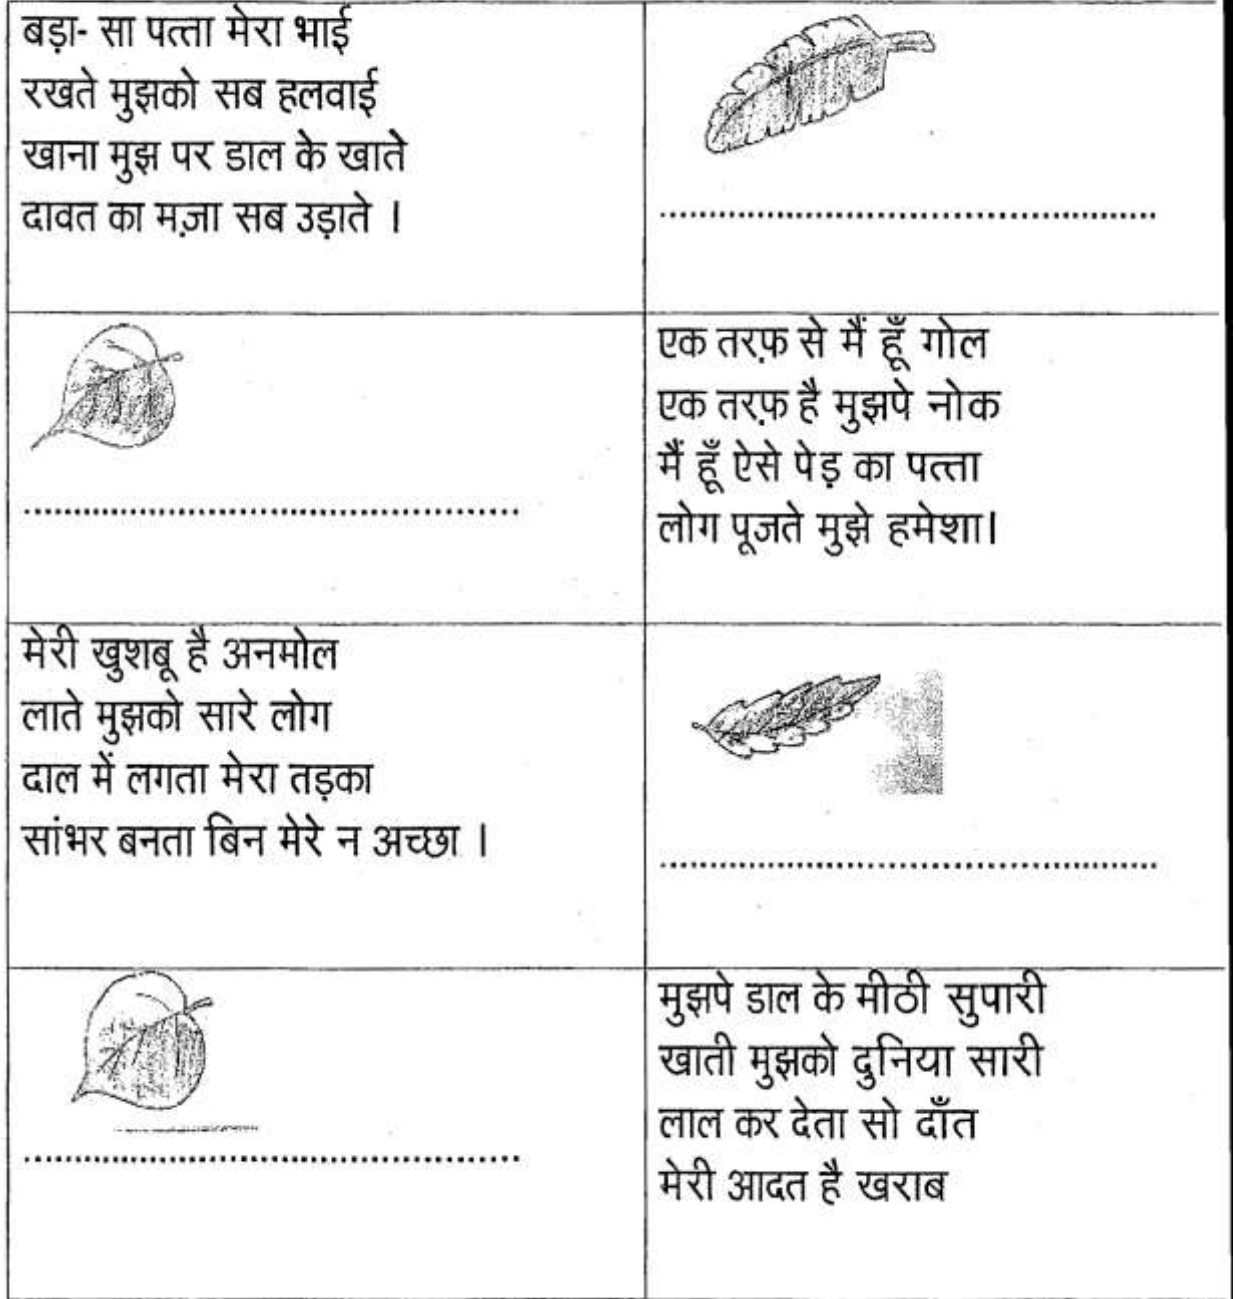 बड़ा- सा पत्ता मेरा भाई
रखते मुझको सब हलवाई
खाना मुझ पर डाल के खाते
दावत का मज़ा सब उड़ाते ।
एक तरफ़ से मैं हूँ गोल
एक तरफ़ है मुझपे नोक
मैं हूँ ऐसे पेड़ का पत्ता
लोग पूजते मुझे हमेशा।
मेरी खुशबू है अनमोल
लाते मुझको सारे लोग
दाल में लगता मेरा तड़का
सांभर बनता बिन मेरे न अच्छा ।
मुझपे डाल के मीठी सुपारी
खाती मुझको दुनिया सारी
लाल कर देता सो दाँत
मेरी आदत है खराब